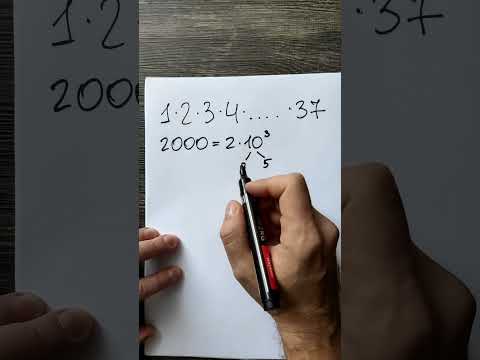 1·2·3·4·.....·37
2000=2·10³
5